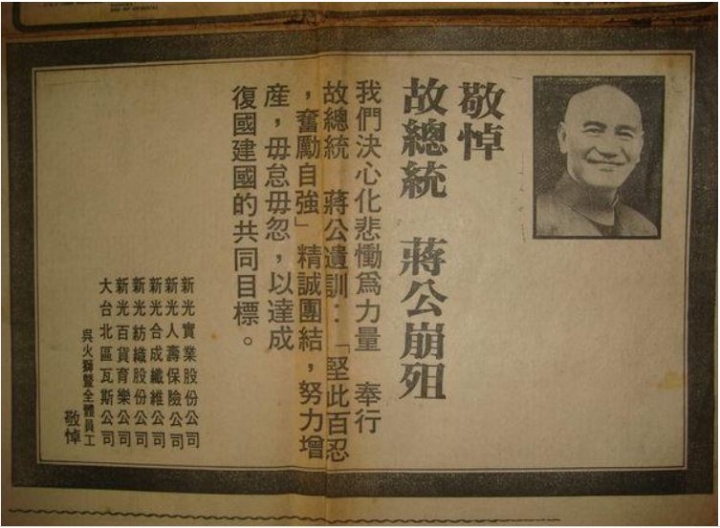 敬悼
故總統　蔣公崩殂
我們決心化悲慟爲力量　奉行
故總統　蔣公遺訓：「堅此百忍
，奮勵自強」精誠團結，努力增
産，毋怠毋忽，以達成
復國建國的共同目標。
新光實業股份公司
新光人壽保險公司
新光合成纖維公司
新光紡織股份公司
新光百貨育樂公司
大台北區瓦斯公司
吳火獅暨全體員工
敬悼